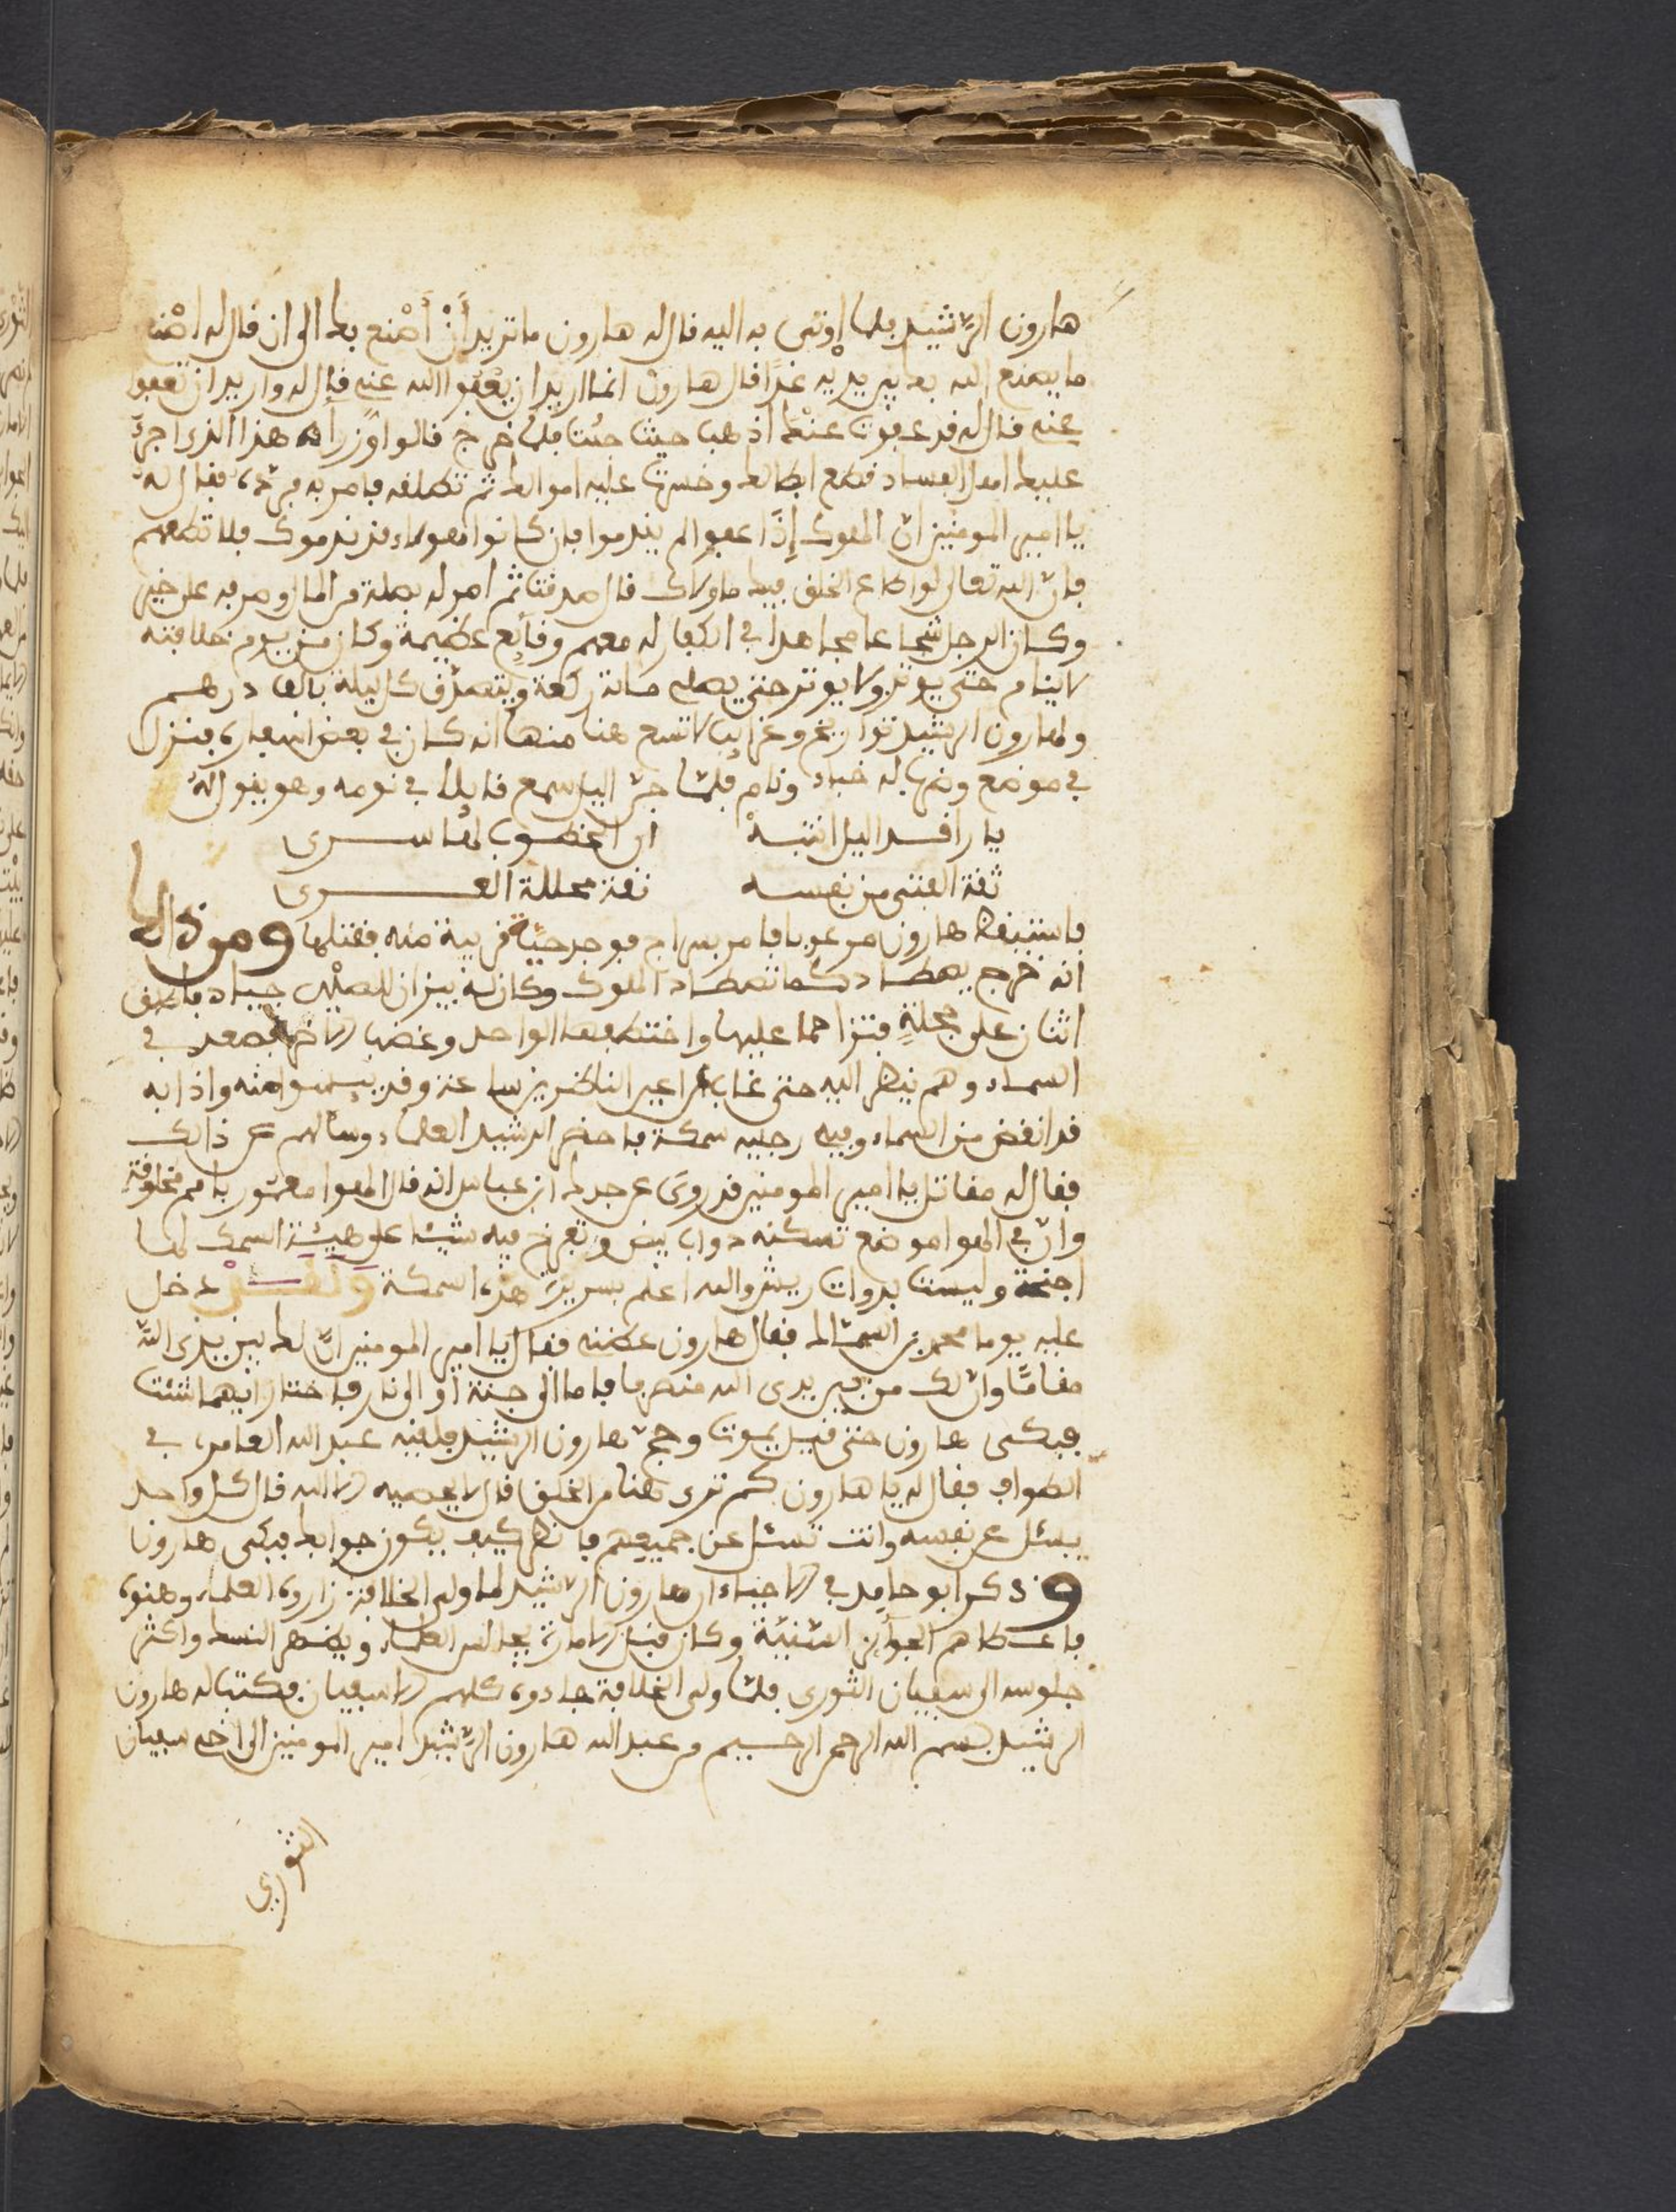 هارون الرّشيد فلما اوتى به اليه قال له هارون ما تريد أَنْ أَصْنع بك الى ان قال له اصْنع
ما يصنع الله بك بين يديه غدًا قال هارون انما اريد ان يعْفُوا الله عنى قال له واريد ان تعفو
عنى قال له قد عفوت عنك اذهب حيث شئت فلما خرج قالوا وُزرآه هذا الذى اجرئَ
عليك اهل الفساد قطع ابطالك وخسرت عليه اموالك ثم تطلقه فامر به فردّ فقال له
يا امير المومنين ان الملوك إذَا عفوا لم يندموا فان كانوا هولاء قد ندموك فلا تطعهم
فانّ الله تعالى لو اطاع الخلق فيك ما ولاك قال صدقت ثم امر له بصلة من المال وصرفه على خير
وكان الرجل شجاعا مجاهدا فى الكفار له معهم وقائع عظيمة وكان من يوم خلافته
لا ينام حتى يوتر ولا يوتر حتى يصلى مائة ركعة ويتصدّق كل ليلة بألف درهم
ولهارون الرشيد تواريخ وغرايب لا تسع هنا منها انه كان فى بعض اسفاره فنزل
فى موضع وضرب له خباء ونام فلمّا جنّ اليل سمع قايلا فى نومه وهو يقول لهُ
يا راقد اليل انتبهْ ان الخطوب لها سرى
ثقة الفتى من نفسه ثقة محللة العرى
فاستيقظ هارون مرعوبا فامر بسراج فوجد حيّة قريبة منه فقتلها ومن ذالك
انه خرج يصطاد كما تصطاد الملوك وكان له بيزان للصيْد جياد فاطلق
اثنان على حجلةٍ فتزاحما عليها واختطفها الواحد وغضب الاخر فصعد فى
السماء وهم ينظر اليه حتى غاب عن اعين الناظرين ساعة وقد ييسوا منه واذا به
قد انقض من السماء وفى رجليه سمكة فاحضر الرشيد العلماء وسالهم عن ذالك
فقال له مقاتل يا امير المومنين قد روى عن جدك ابن عباس انه قال الهوا معمور بامم مخلوقة
وانّ فى الهوا موضع تسكنه دواب بيض وتفرخ فيه شيئا على هيئة السمك لها
اجنحة وليست بدوات ريش والله اعلم بسريرة هذه السمكة ولقد دخل
عليه يوما محمد بن السمّاك فقال هارون عظنى فقال يا امير المومنين انّ لك بين يدى اللَّه
مقامًا وان لك من بين يدى الله منصرفا فاما الى جنة او الى نار فاختار ايهما شئت
فبكى هارون حتى قيل يموت وحجّ هارون الرشيد فلقيه عبد الله العامرى فى
الطواف فقال له يا هارون كم ترى هنا من الخلق قال لا يحصيه الا الله قال كل واحد
يسئل عن نفسه وانت تسئل عن جميعهم فانظر كيف يكون جوابك فبكى هارون
وذكر ابو حامد فى الاحياء ان هارون الرّشيد لما ولى الخلافة زاروه العلماء وهنوه
فاعطاهم الجوآئز السّنيّة وكان قبل الامارة يجالس العلماء ويظهر النسك واكثر
جلوسه الى سفيان الثورى فلمّا ولى الخلافة عادوه كلهم الا سفيان فكتب له هارون
الرشيد بسم الله الرحمن الرحيم من عبد الله هارون الرّشيد امير المومنين الى اخيه سفيان
الثورى